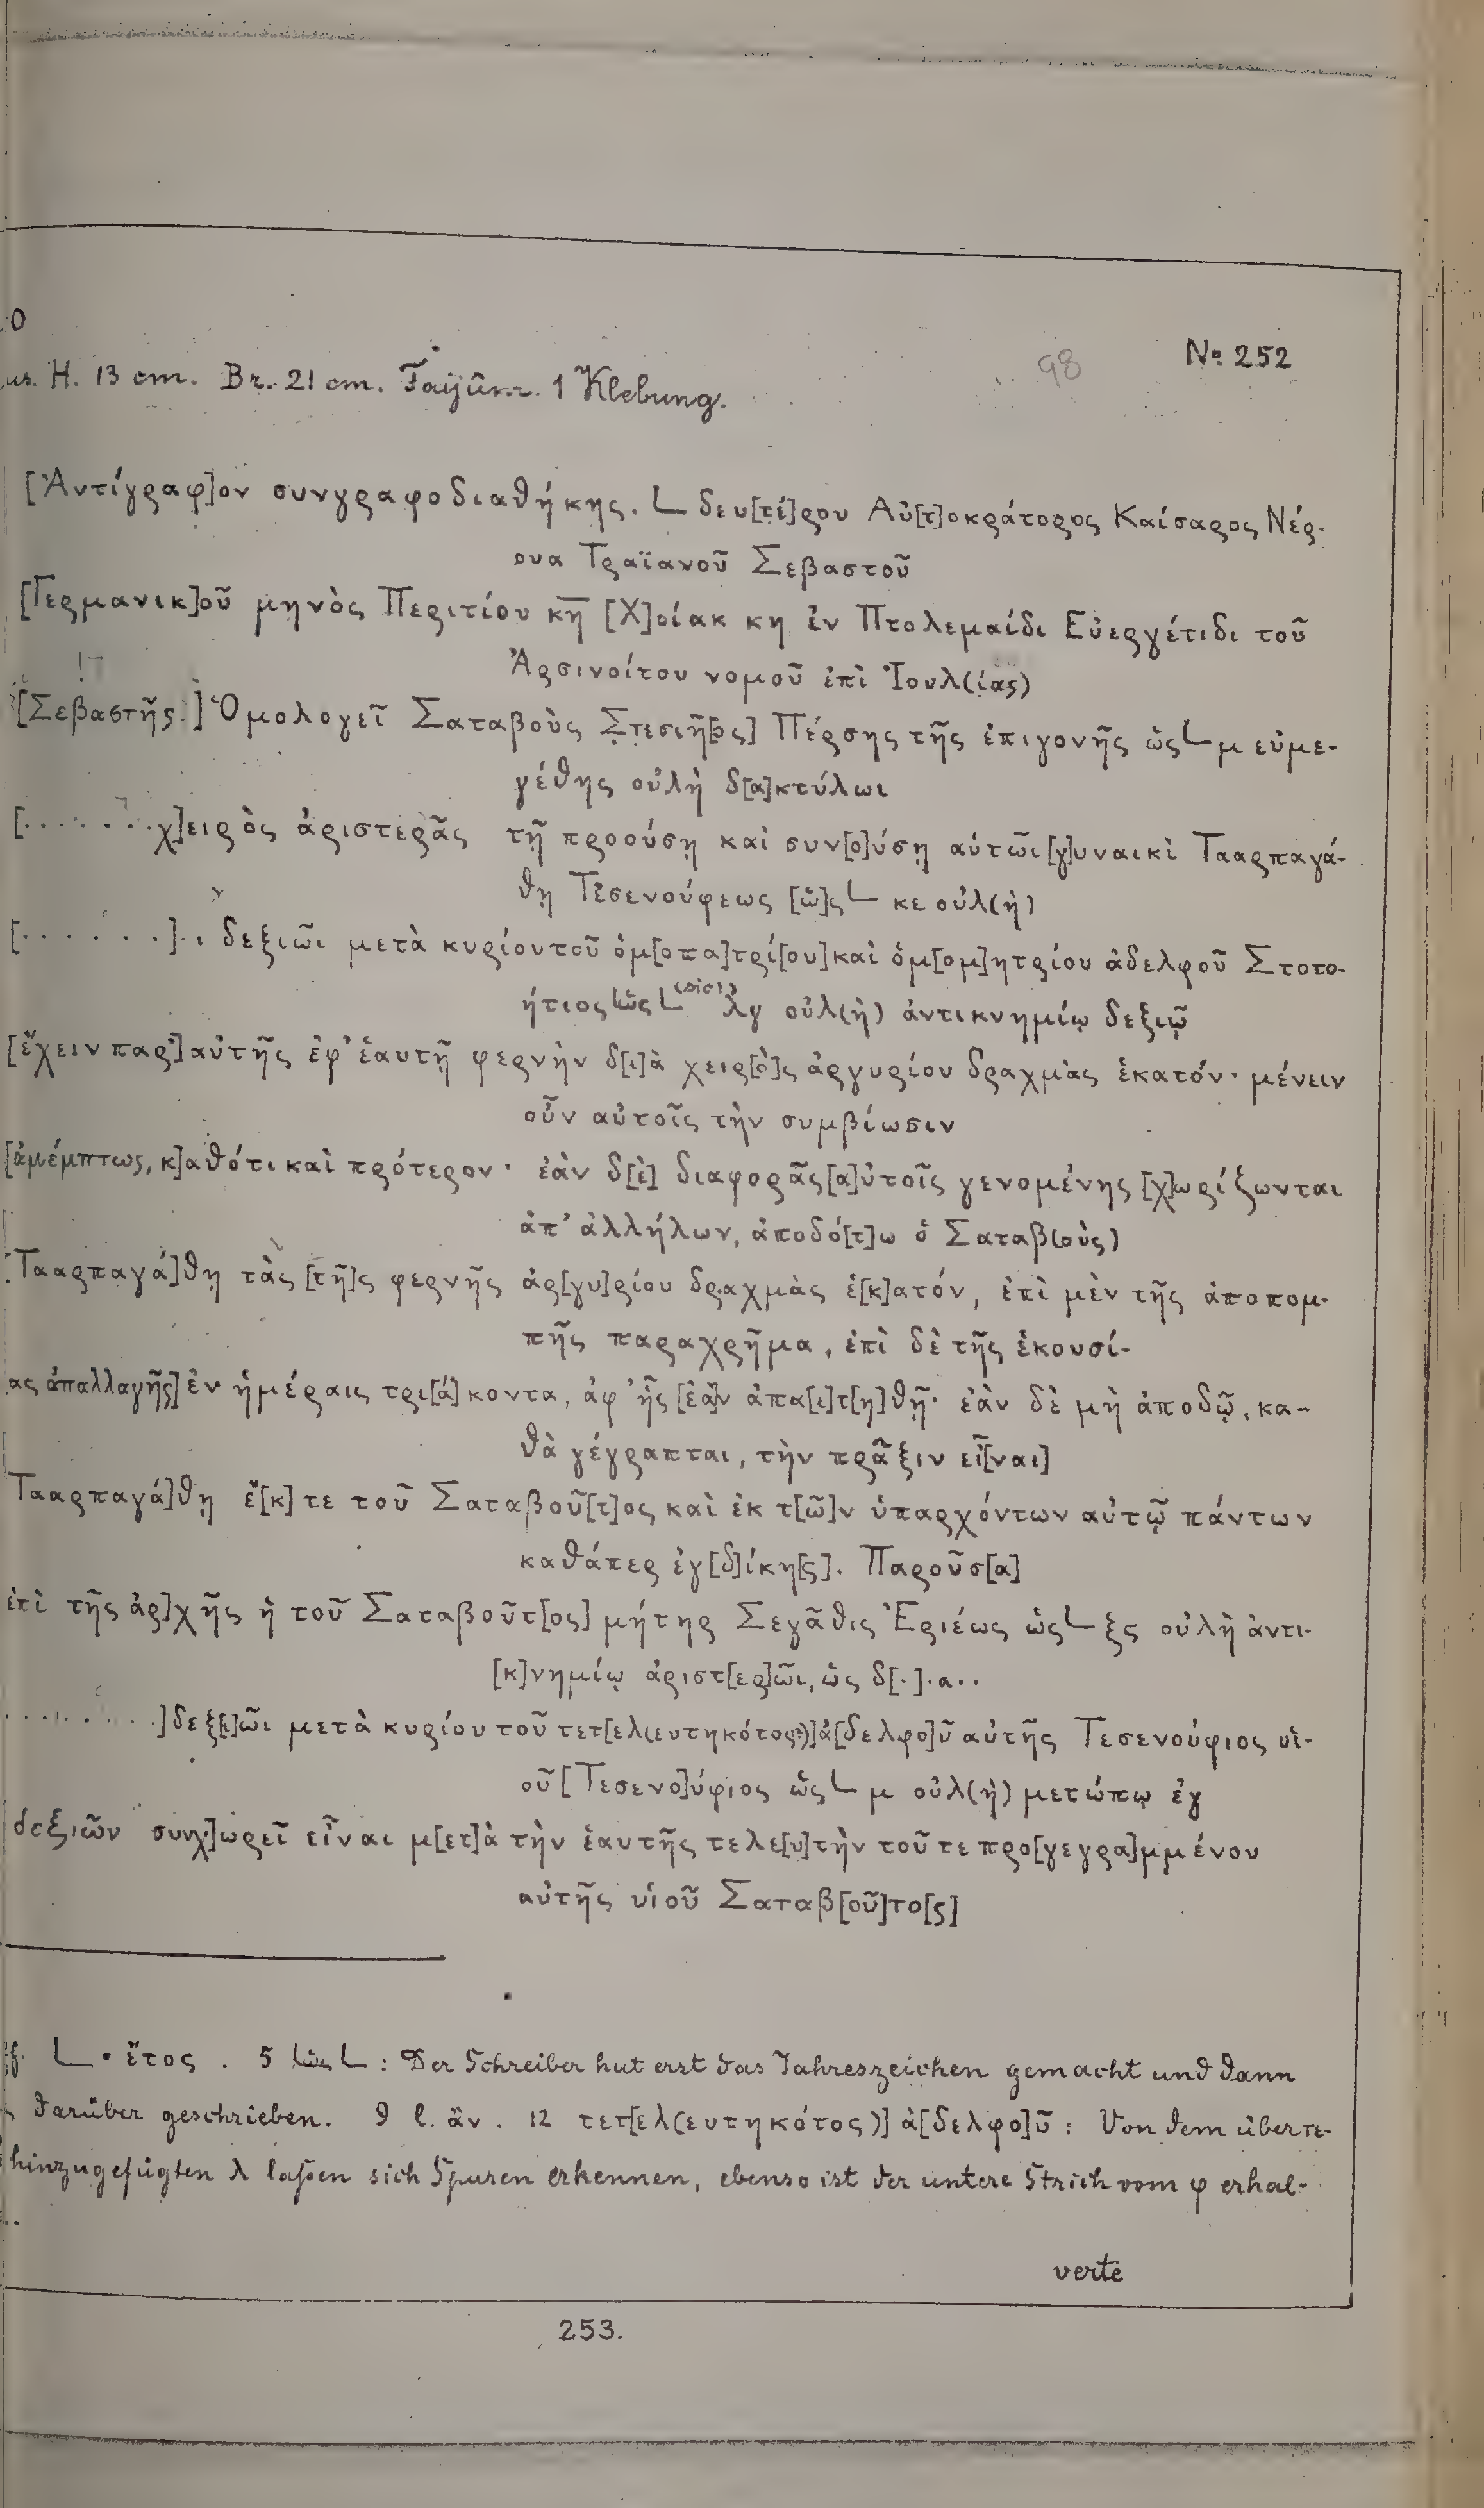 0
98
№ 252
us. H. 13 cm. Br. 21 cm. Faijûm. 1 Klebung.
[Ἀντίγραφ]ον συνγραφοδιαθήκης. L δευ[τέ]ρου Αὐ[τ]οκράτορος Καίσαρος Νέρ-
ουα Τραϊανοῦ Σεβαστοῦ
[Γερμανικ]οῦ μηνὸς Περιτίου κη [Χ]οίακ κη ἐν Πτολεμαίδι Εὐεργέτιδι τοῦ
Ἀρσινοίτου νομοῦ ἐπὶ Ἰουλ(ίας)
[Σεβαστῆς.] Ὁμολογεῖ Σαταβοὺς Στεσιῆ[ος] Πέρσης τῆς ἐπιγονῆς ὡς L μ εὐμε-
γέθης οὐλὴ δ[α]κτύλωι
[· · · · · · · χ]ειρὸς ἀριστερᾶς τῇ προούσῃ καὶ συν[ο]ύσῃ αὐτῶι [γ]υναικὶ Τααρπαγά-
θῃ Τεσενούφεως [ὡ]ς L κε οὐλ(ὴ)
[· · · · · · ·]·ι δεξιῶι μετὰ κυρίου τοῦ ὁμ[οπα]τρί[ου] καὶ ὁμ[ομ]ητρίου ἀδελφοῦ Στοτο-
ήτιος LὡςL (sic!) λγ οὐλ(ὴ) ἀντικνημίῳ δεξιῷ
[ἔχειν παρ'] αὐτῆς ἐφ' ἑαυτῇ φερνὴν δ[ι]ὰ χειρ[ὸ]ς ἀργυρίου δραχμὰς ἑκατόν· μένειν
οὖν αὐτοῖς τὴν συμβίωσιν
[ἀμέμπτως, κ]αθότι καὶ πρότερον· ἐὰν δ[ὲ] διαφορᾶς [α]ὐτοῖς γενομένης [χ]ωρίζωνται
ἀπ' ἀλλήλων, ἀποδό[τ]ω ὁ Σαταβ(οὺς)
[Τααρπαγά]θῃ τὰς [τῆ]ς φερνῆς ἀρ[γυ]ρίου δραχμὰς ἑ[κ]ατόν, ἐπὶ μὲν τῆς ἀποπομ-
πῆς παραχρῆμα, ἐπὶ δὲ τῆς ἑκουσί-
ας ἀπαλλαγῆς] ἐν ἡμέραις τρι[ά]κοντα, ἀφ' ἧς [ἐὰ]ν ἀπα[ι]τ[η]θῇ· ἐὰν δὲ μὴ ἀποδῷ, κα-
θὰ γέγραπται, τὴν πρᾶξιν εἶ[ναι]
Τααρπαγά]θῃ ἔ[κ] τε τοῦ Σαταβοῦ[τ]ος καὶ ἐκ τ[ῶ]ν ὑπαρχόντων αὐτῷ πάντων
καθάπερ ἐγ [δ]ίκη[ς]. Παροῦσ[α]
ἐπὶ τῆς ἀρ]χῆς ἡ τοῦ Σαταβοῦτ[ος] μήτηρ Σεγᾶθις Ἑριέως ὡς L ξς οὐλὴ ἀντι-
[κ]νημίῳ ἀριστ[ερ]ῶι, ὡς δ[·]·α··
· · · · · · · ·] δεξ[ι]ῶι μετὰ κυρίου τοῦ τετ[ελ(ευτηκότος?)] ἀ[δελφο]ῦ αὐτῆς Τεσενούφιος υἱ-
οῦ [Τεσενο]ύφιος ὡς L μ οὐλ(ὴ) μετώπῳ ἐγ
δεξιῶν συνχ]ωρεῖ εἶναι μ[ετ]ὰ τὴν ἑαυτῆς τελε[υ]τὴν τοῦ τε προ[γεγρα]μμένου
αὐτῆς υἱοῦ Σαταβ[οῦ]το[ς]
ff. L = ἔτος. 5 LὡςL : Der Schreiber hat erst das Jahreszeichen gemacht und dann
darüber geschrieben. 9 l. ἂν. 12 τετ[ελ(ευτηκότος)] ἀ[δελφο]ῦ : Von dem überτε-
hinzugefügten λ laßen sich Spuren erkennen, ebenso ist der untere Strich vom φ erhal-
verte
253.